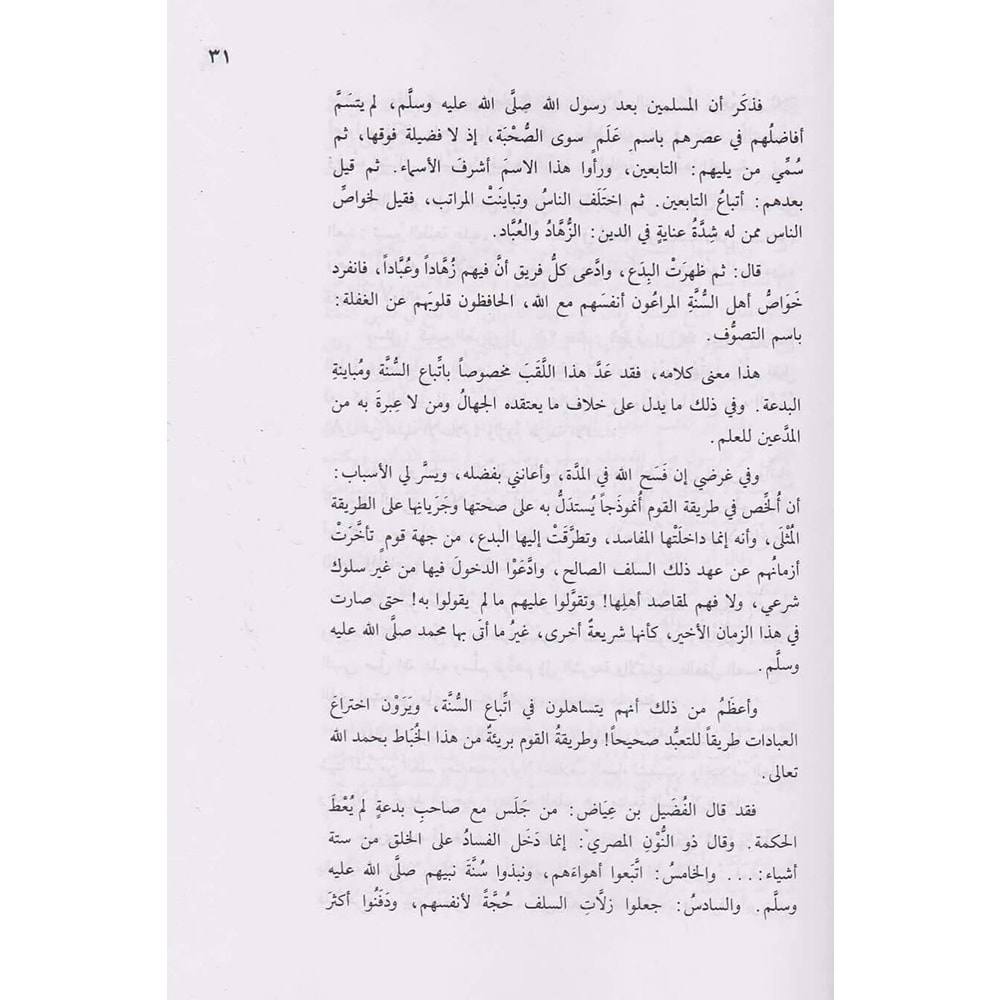 ٣١
فذكَر أن المسلمين بعد رسول الله صلَّى الله عليه وسلَّم، لم يتسَمَّ
أفاضلُهم في عصرهم باسمِ عَلَمٍ سوى الصُّحْبَة، إذ لا فضيلة فوقها، ثم
سُمِّي من يليهم: التابعين، ورأوا هذا الاسمَ أشرفَ الأسماء. ثم قيل
بعدهم: أتباعُ التابعين. ثم اختَلَف الناسُ وتباينَتْ المراتب، فقيل لخواصِّ
الناس ممن له شِدَّةُ عنايةٍ في الدين: الزُّهَّادُ والعُبَّاد.
قال: ثم ظهرَتْ البِدَع، وادَّعى كلُّ فريق أنَّ فيهم زُهَّاداً وعُبَّاداً، فانفرد
خَوَاصُّ أهل السُّنَّةِ المراعُون أنفسَهم مع الله، الحافظون قلوبَهم عن الغفلة:
باسم التصوُّف.
هذا معنى كلامه، فقد عَدَّ هذا اللَّقَبَ مخصوصاً باتِّباع السُّنَّة ومُباينةِ
البدعة. وفي ذلك ما يدل على خلاف ما يعتقده الجهالُ ومن لا عِبرةَ به من
المدَّعين للعلم.
وفي غرضي إن فَسَح الله في المدَّة، وأعانني بفضله، ويسَّر لي الأسباب:
أن أُلخِّص في طريقة القوم أُنموذَجاً يُستدَلُّ به على صحتها وجَرَيانِها على الطريقة
المُثْلَى، وأنه إنما داخلَتْها المفاسد، وتطرَّقَتْ إليها البدع، من جهة قومٍ تأخَّرَتْ
أزمانُهم عن عهد ذلك السلف الصالح، وادَّعَوْا الدخولَ فيها من غير سلوك
شرعي، ولا فهم لمقاصد أهلِها! وتقوَّلوا عليهم ما لم يقولوا به! حتى صارت
في هذا الزمان الأخير، كأنها شريعةٌ أخرى، غيرُ ما أتى بها محمد صلَّى الله عليه
وسلَّم.
وأعظَمُ من ذلك أنهم يتساهلون في اتِّباع السُّنَّة، ويَرَوْن اختراعَ
العبادات طريقاً للتعبُّد صحيحاً! وطريقةُ القوم بريئةٌ من هذا الخُبَاط بحمد الله
تعالى.
فقد قال الفُضَيل بن عِيَاض: من جَلَس مع صاحبِ بدعةٍ لم يُعْطَ
الحكمة. وقال ذو النُّوْنِ المصري: إنما دَخَل الفسادُ على الخلق من ستة
أشياء:... والخامسُ: اتَّبَعوا أهواءَهم، ونبذوا سُنَّةَ نبيهم صلَّى الله عليه
وسلَّم. والسادسُ: جعلوا زلَّاتِ السلف حُجَّةً لأنفسهم، ودَفَنُوا أكثَرَ